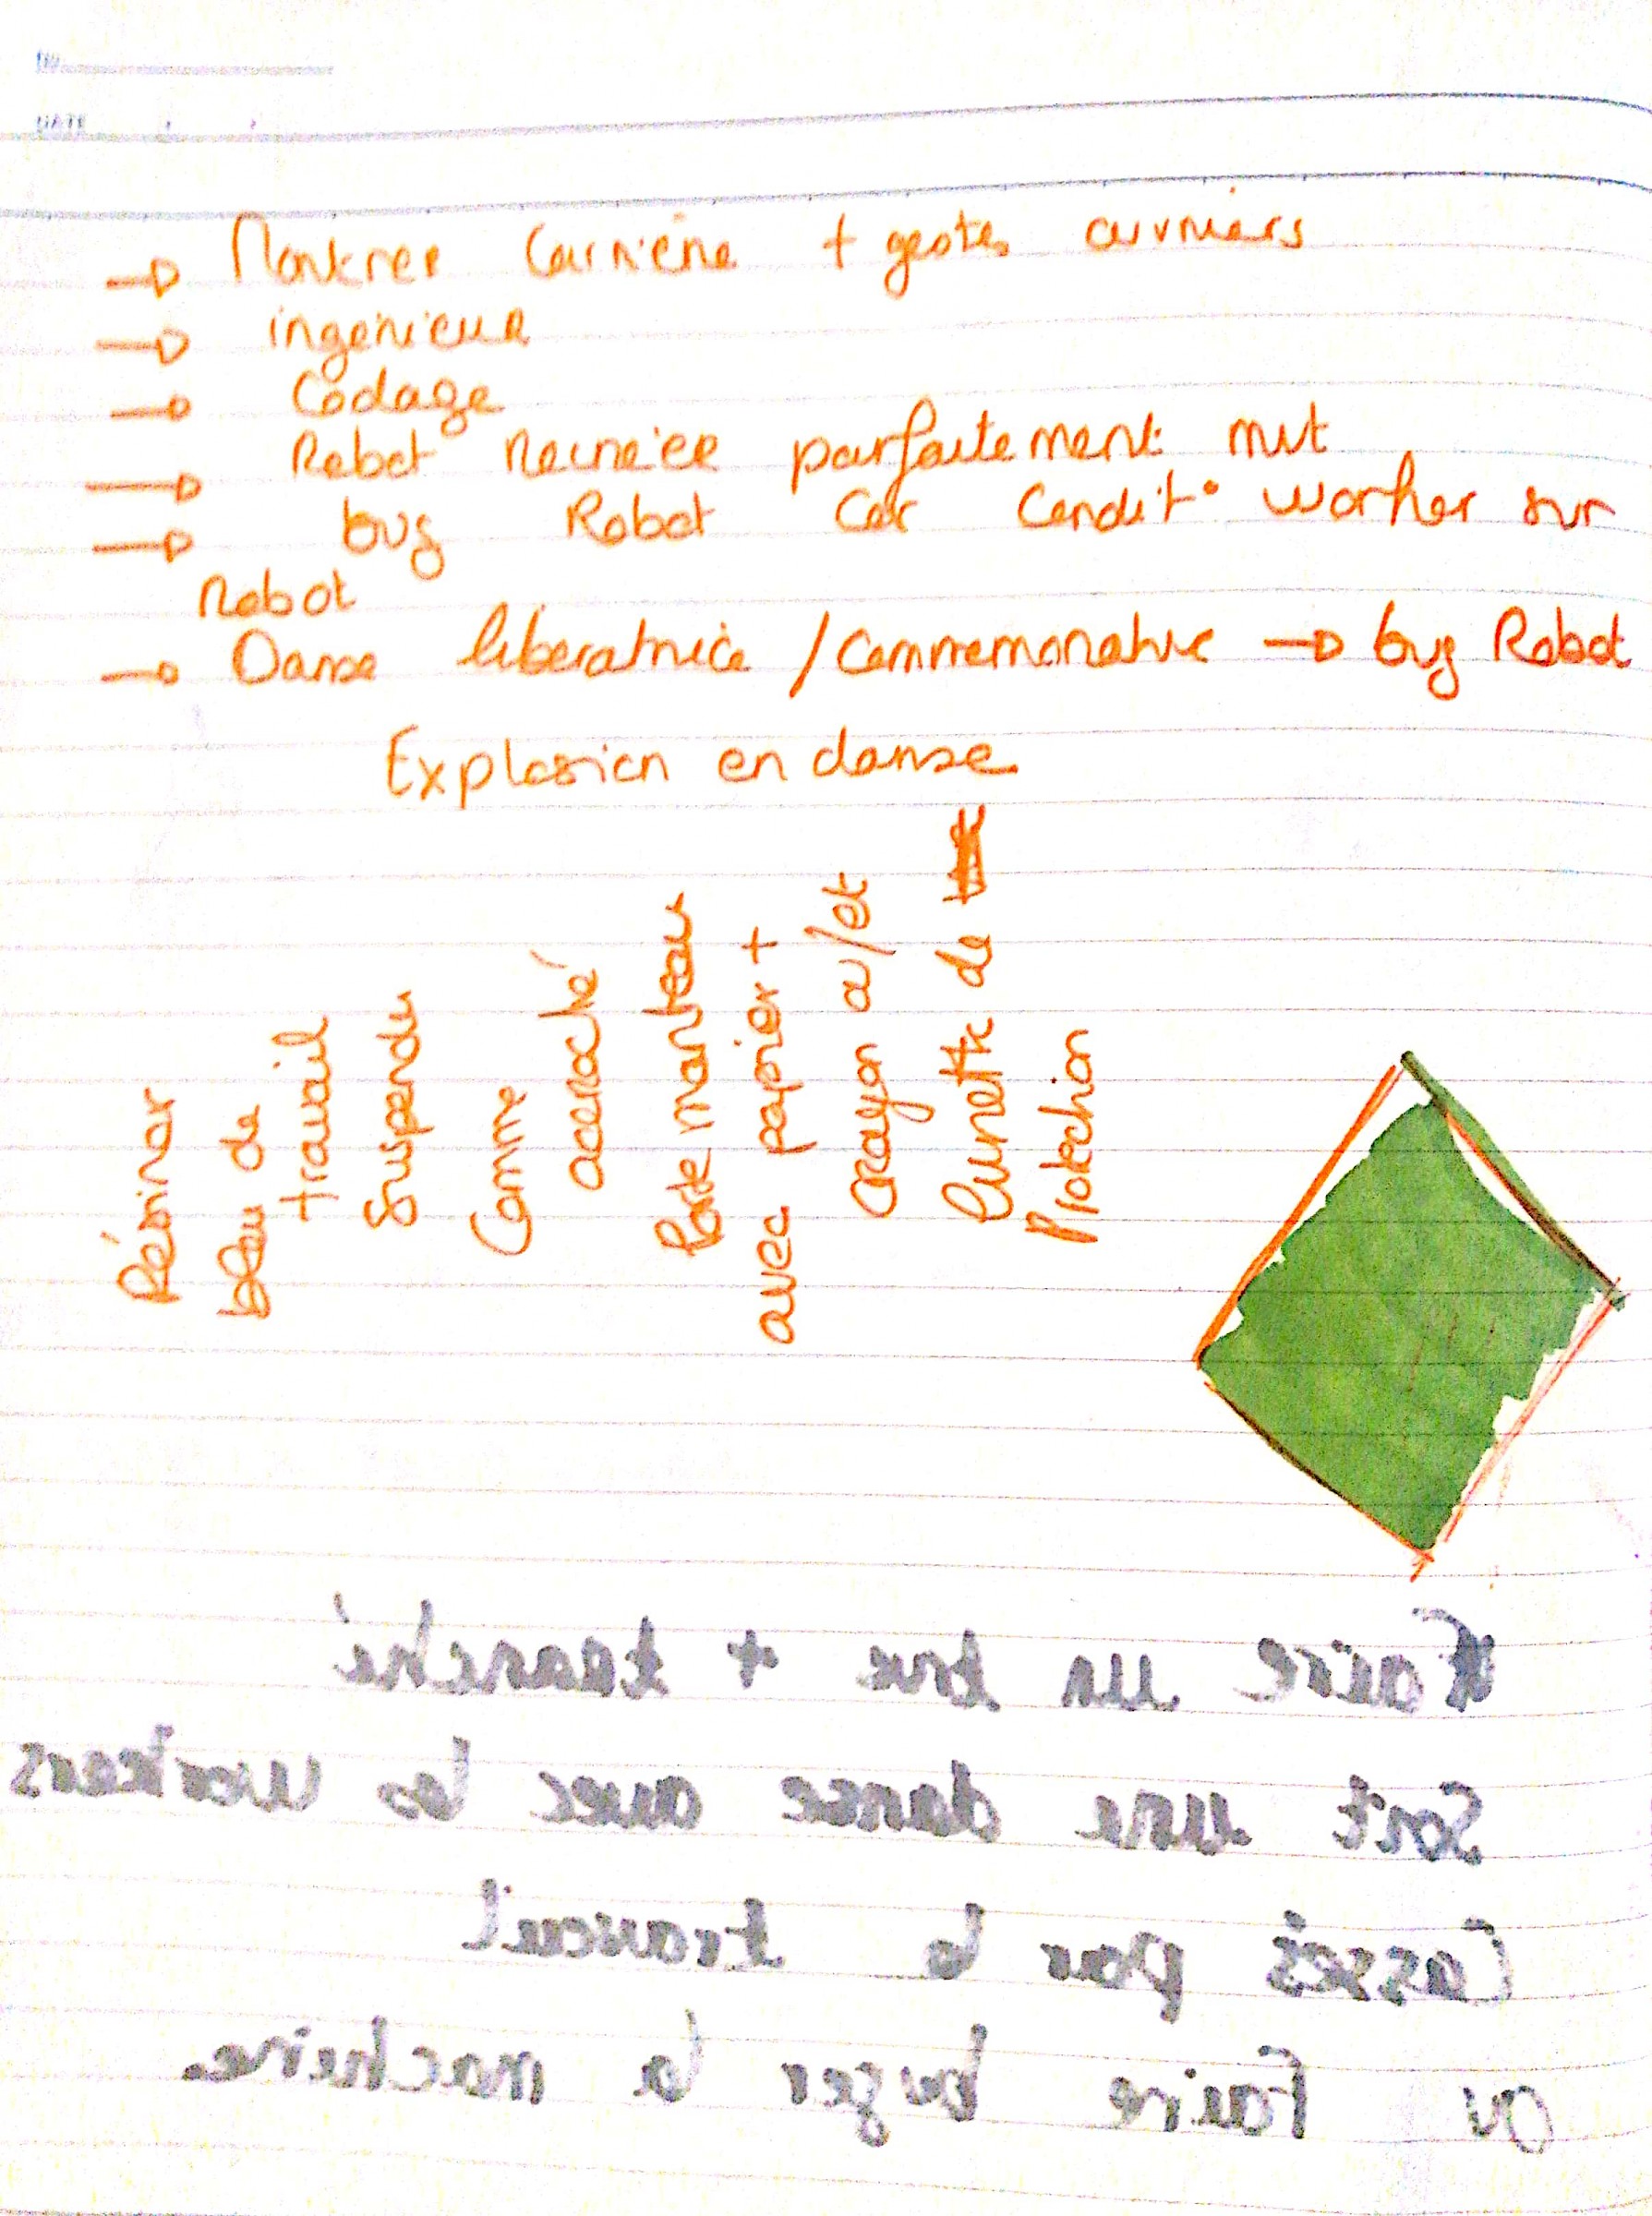 → Montrer Carrière + gestes ouvriers
→ ingenieur
→ Codage
→ Robot parfaitement mit
→ bug Robot Car Condit° worker sur
Robot
→ Danse liberatrice / Commemorative → bug Robot
Explosion en danse
Résinar
bleu de
travail
Suspendu
Comme
accroché
Porte manteau
avec papier +
crayon a/et
lunette de
Protection
Faire un truc + tranché
Soit une danse avec les workers
Cassés par le travail
ou Faire buger la macheine.